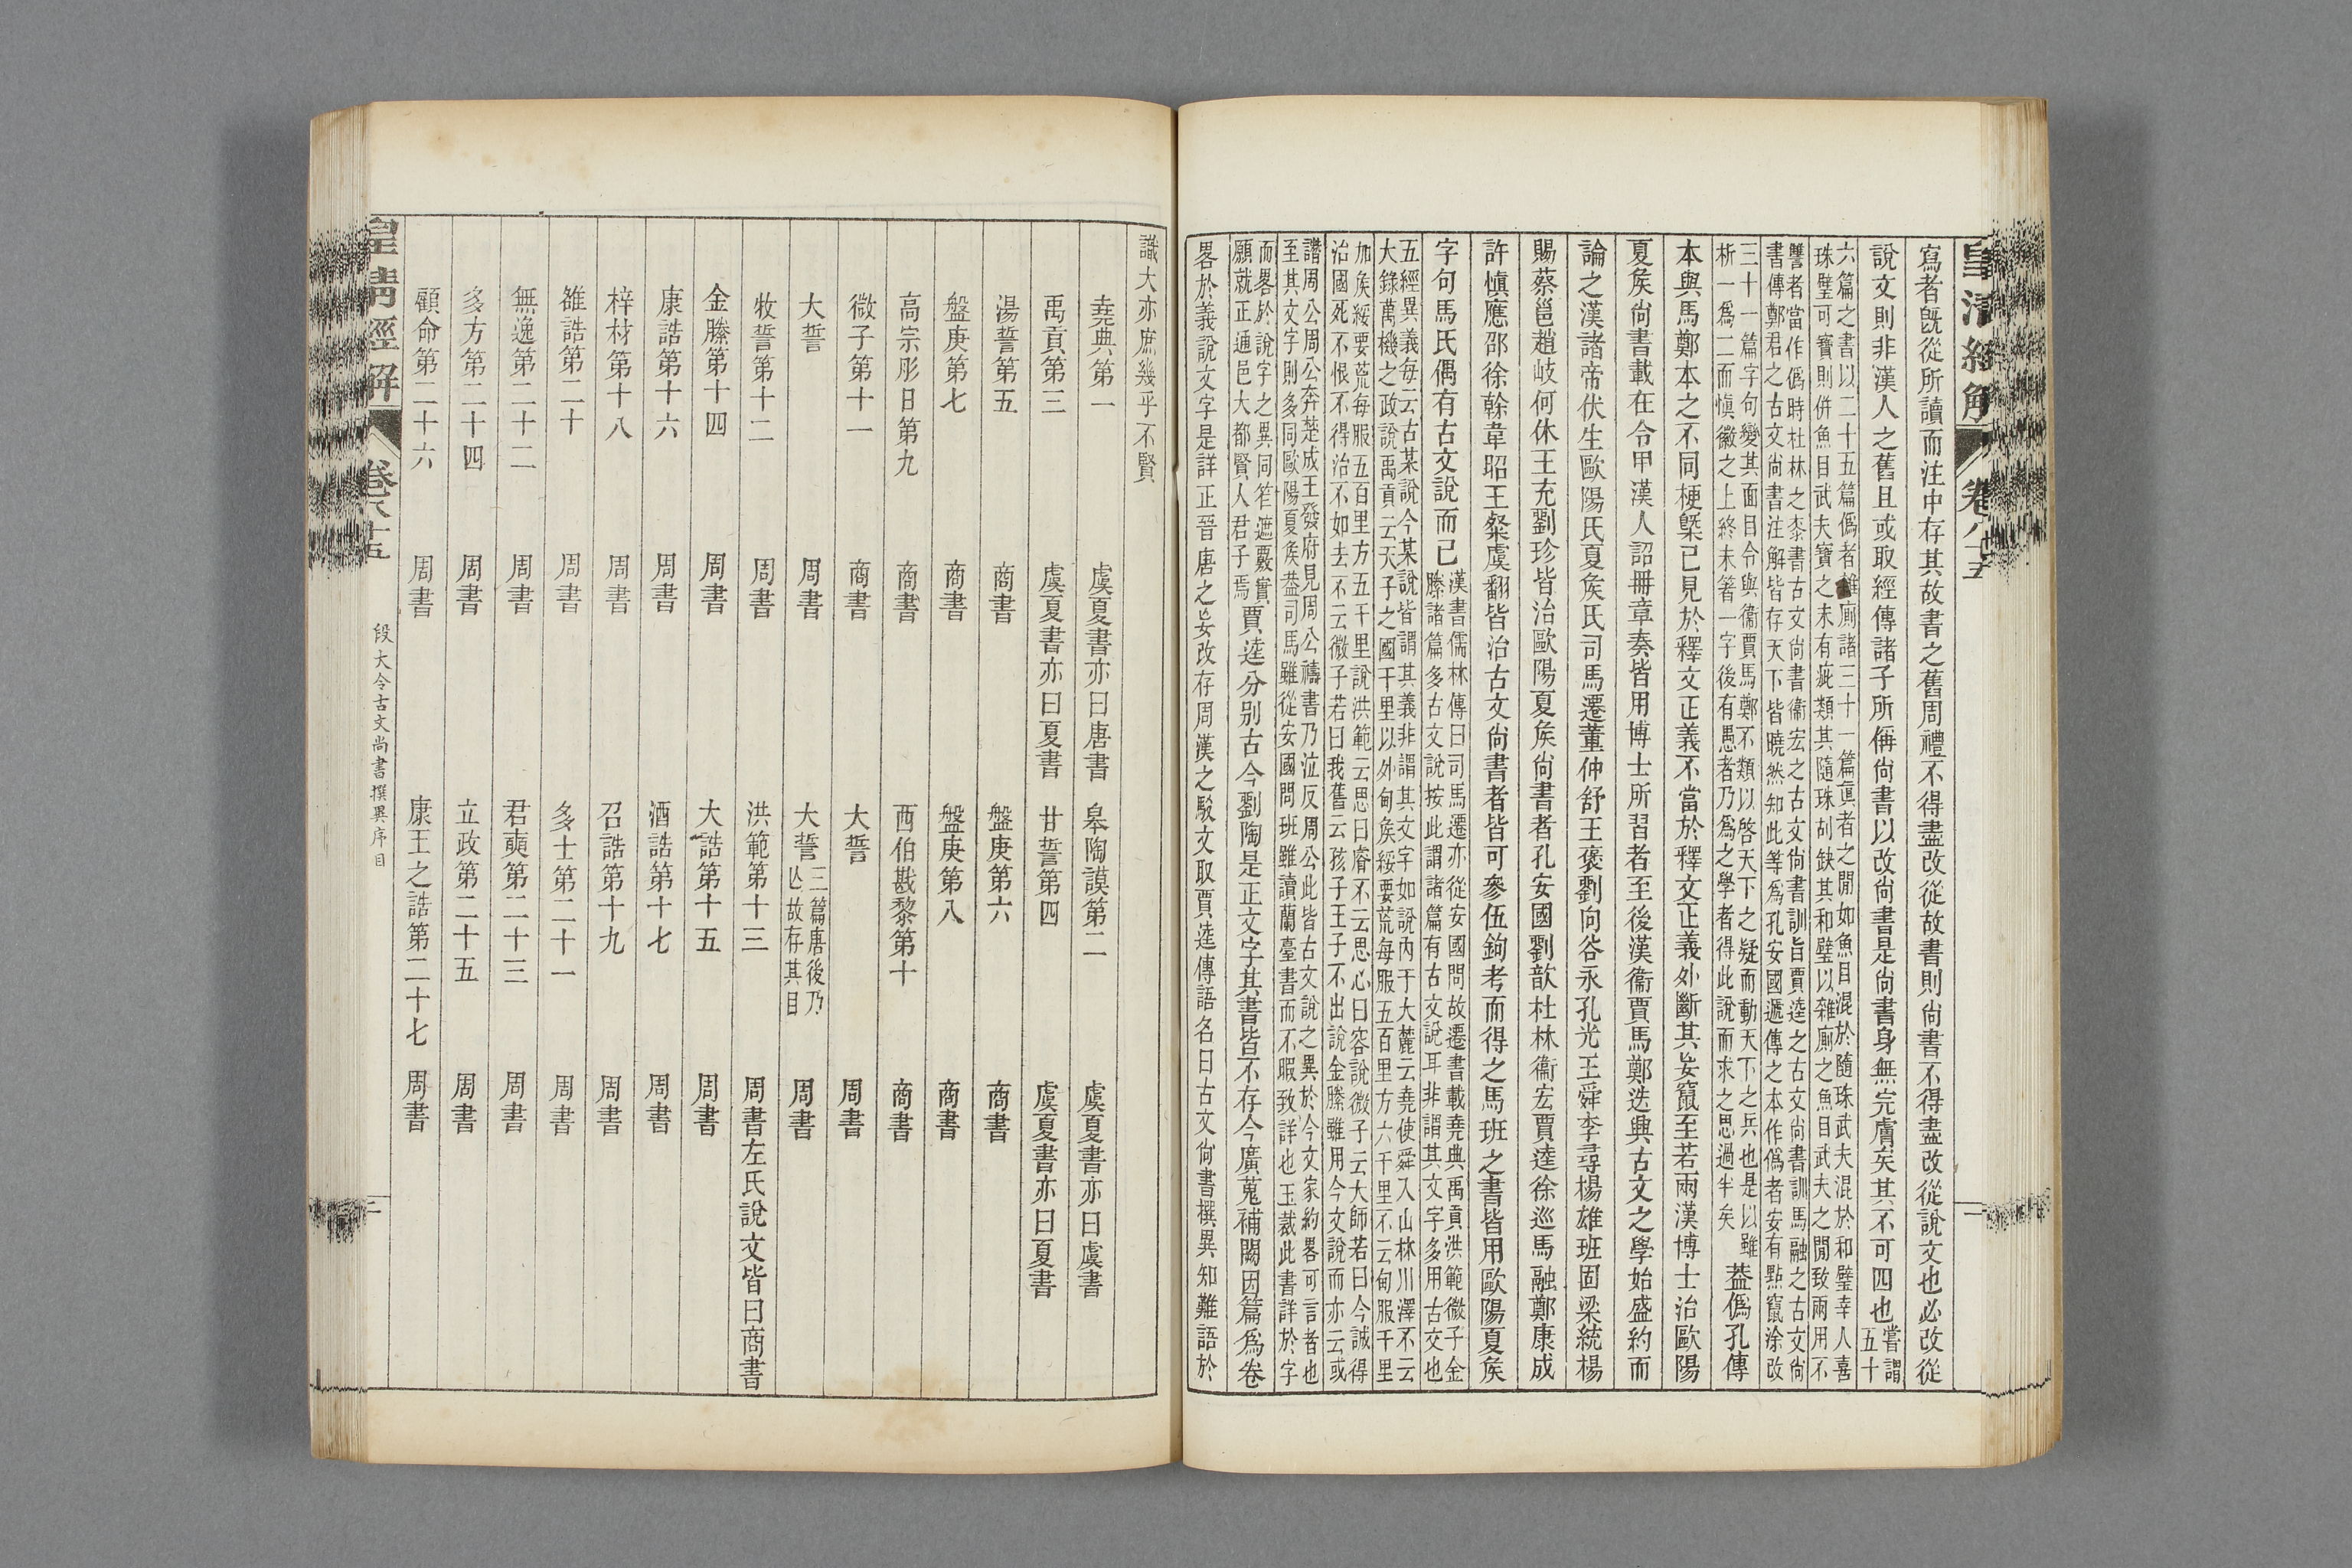 皇清經解
卷八十五
一
寫者旣從所讀而注中存其故書之舊周禮不得盡改從故書則尙書不得盡改從說文也必改從
說文則非漢人之舊且或取經傳諸子所偁尙書以改尙書是尙書身無完膚矣其不可四也嘗謂
五十
六篇之書以二十五篇僞者雜廁諸三十一篇眞者之閒如魚目混於隨珠武夫混於和璧幸人喜
珠璧可寶則併魚目武夫寶之未有疵纇其隨珠刓缺其和璧以雜廁之魚目武夫之閒致兩用不
讐者當作僞時杜林之桼書古文尙書衞宏之古文尙書訓旨賈逵之古文尙書訓馬融之古文尙
書傳鄭君之古文尙書注解皆存天下皆曉然知此等爲孔安國遞傳之本作僞者安有點竄涂改
三十一篇字句變其面目令與衞賈馬鄭不類以啓天下之疑而動天下之兵也是以雖
析一爲二而愼徽之上終未箸一字後有愚者乃爲之學者得此說而求之思過半矣
葢僞孔傳
本與馬鄭本之不同梗槩已見於釋文正義不當於釋文正義外斷其妄竄至若兩漢博士治歐陽
夏矦尙書載在令甲漢人詔冊章奏皆用博士所習者至後漢衞賈馬鄭迭興古文之學始盛約而
論之漢諸帝伏生歐陽氏夏矦氏司馬遷董仲舒王褒劉向谷永孔光王舜李尋楊雄班固梁統楊
賜蔡邕趙岐何休王充劉珍皆治歐陽夏矦尙書者孔安國劉歆杜林衞宏賈逵徐巡馬融鄭康成
許愼應邵徐幹韋昭王粲虞翻皆治古文尙書者皆可參伍鉤考而得之馬班之書皆用歐陽夏矦
字句馬氏偶有古文說而已
漢書儒林傳曰司馬遷亦從安國問故遷書載堯典禹貢洪範微子金
縢諸篇多古文說按此謂諸篇有古文說耳非謂其文字多用古文也
五經異義每云古某說今某說皆謂其義非謂其文字如說內于大麓云堯使舜入山林川澤不云
大錄萬機之政說禹貢云天子之國千里以外甸矦綏要荒每服五百里方六千里不云甸服千里
加矦綏要荒每服五百里方五千里說洪範云思曰睿不云思心曰容說微子云大師若曰今誠得
治國死不恨不得治不如去不云微子若曰我舊云孩子王子不出說金縢雖用今文說而亦云或
譖周公周公奔楚成王發府見周公禱書乃泣反周公此皆古文說之異於今文家約畧可言者也
至其文字則多同歐陽夏矦葢司馬雖從安國問班雖讀蘭臺書而不暇致詳也玉裁此書詳於字
而畧於說字之異同䇓遮覈實
願就正通邑大都賢人君子焉
賈逵分别古今劉陶是正文字其書皆不存今廣蒐補闕因篇爲卷
畧於義說文字是詳正晉唐之妄改存周漢之駁文取賈逵傳語名曰古文尙書撰異知難語於
識大亦庶幾乎不賢
堯典第一　虞夏書亦曰唐書　皋陶謨第二　虞夏書亦曰虞書
禹貢第三　虞夏書亦曰夏書　甘誓第四　虞夏書亦曰夏書
湯誓第五　商書　盤庚第六　商書
盤庚第七　商書　盤庚第八　商書
高宗肜日第九　商書　西伯戡黎第十　商書
微子第十一　商書　大誓　周書
大誓　周書　大誓三篇唐後乃
亾故存其目　周書
牧誓第十二　周書　洪範第十三　周書左氏說文皆曰商書
金縢第十四　周書　大誥第十五　周書
康誥第十六　周書　酒誥第十七　周書
梓材第十八　周書　召誥第十九　周書
雒誥第二十　周書　多士第二十一　周書
無逸第二十二　周書　君奭第二十三　周書
多方第二十四　周書　立政第二十五　周書
顧命第二十六　周書　康王之誥第二十七　周書
皇清經解
卷八十五
段大令古文尚書撰異序目
二